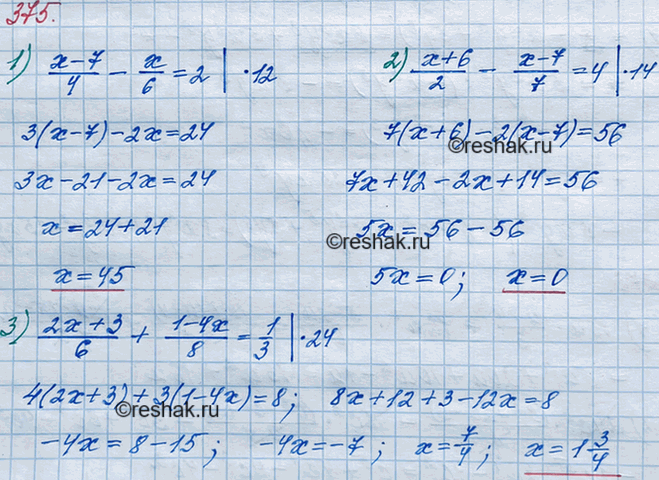 375.
1) (x-7)/4 - x/6 = 2 | ·12
3(x-7)-2x=24
3x-21-2x=24
x=24+21
x=45
2) (x+6)/2 - (x-7)/7 = 4 | ·14
7(x+6)-2(x-7)=56
©reshak.ru
7x+42-2x+14=56
5x=56-56
©reshak.ru
5x=0; x=0
3) (2x+3)/6 + (1-4x)/8 = 1/3 | ·24
4(2x+3)+3(1-4x)=8; 8x+12+3-12x=8
©reshak.ru
-4x=8-15; -4x=-7; x=7/4; x=1 3/4